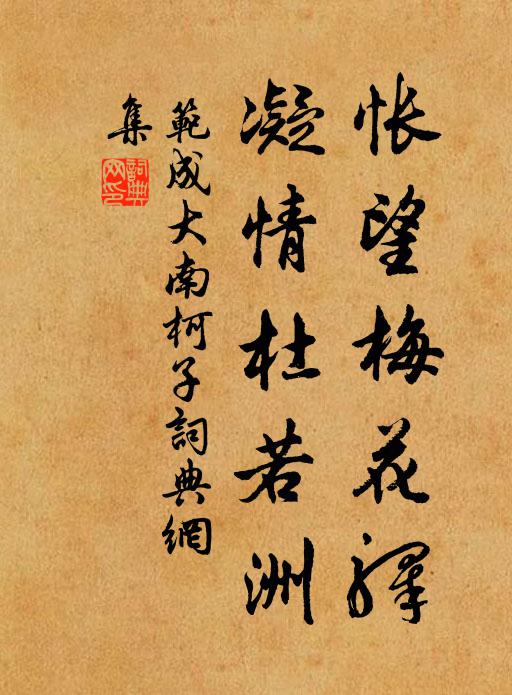 悵望梅花驛
凝情杜若洲
範成大南柯子詞典網
集
詞典網印